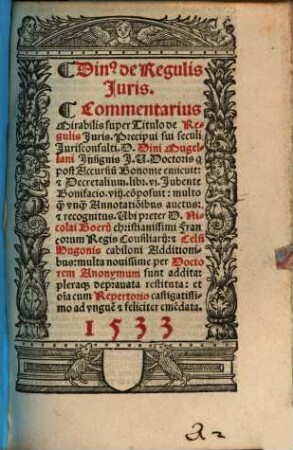 ¶ Dinꝰ de Regulis
Juris.
¶ Commentarius
Mirabilis super Titulo de Re-
gulis Juris. Precipui sui seculi
Jurisconsulti. D. Dini Mugel-
lani Insignis J. U. Doctoris q
post Accursiũ Bononie emicuit:
⁊ Decretalium. lib. vj. Jubente
Bonifacio. viij. cõposuit: multo
q̃ vnq̃ Annotatiõibus auctus:
⁊ recognitus. Ubi preter D. Ni-
colai Boerij christianissimi Fran-
corum Regis Consiliarij: ⁊ Celsi
Hugonis cabiloni Additioni-
bus: multa nouissime per Docto
rem Anonymum sunt addita:
pleraq; deprauata restituta: et
oĩa cum Repertorio castigatissi-
mo ad vnguẽ ⁊ feliciter emẽdata.
1533